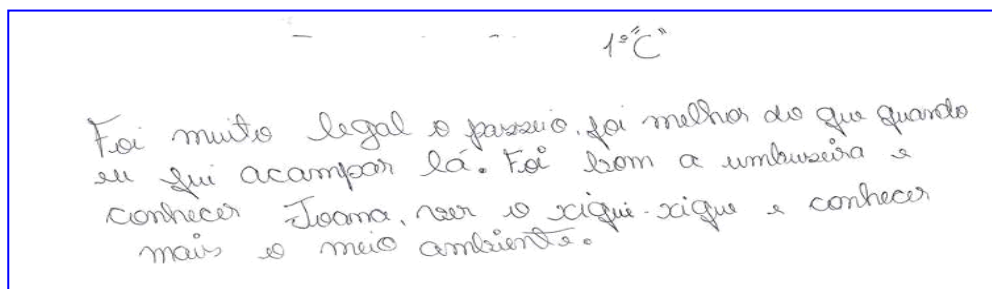 1º "C"
Foi muito legal o passeio, foi melhor do que quando
eu fui acampar lá. Foi bom a umbuzeira e
conhecer Joana, ver o xique-xique e conhecer
mais o meio ambiente.